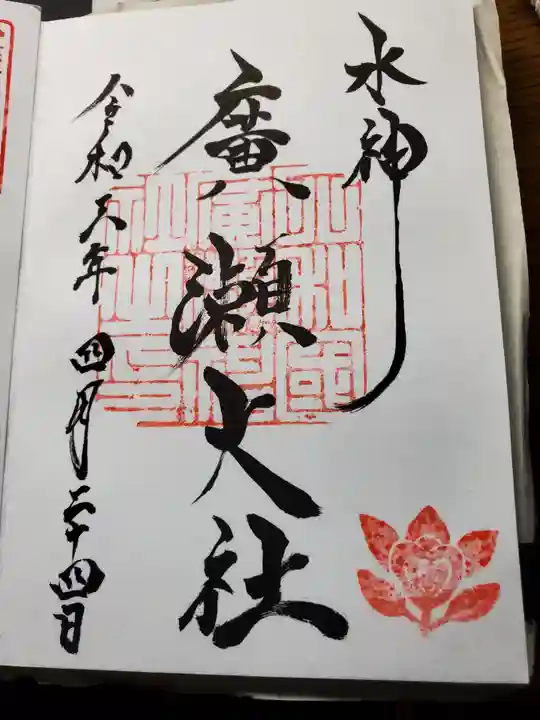 水神
廣瀬大社
令和六年四月二十四日